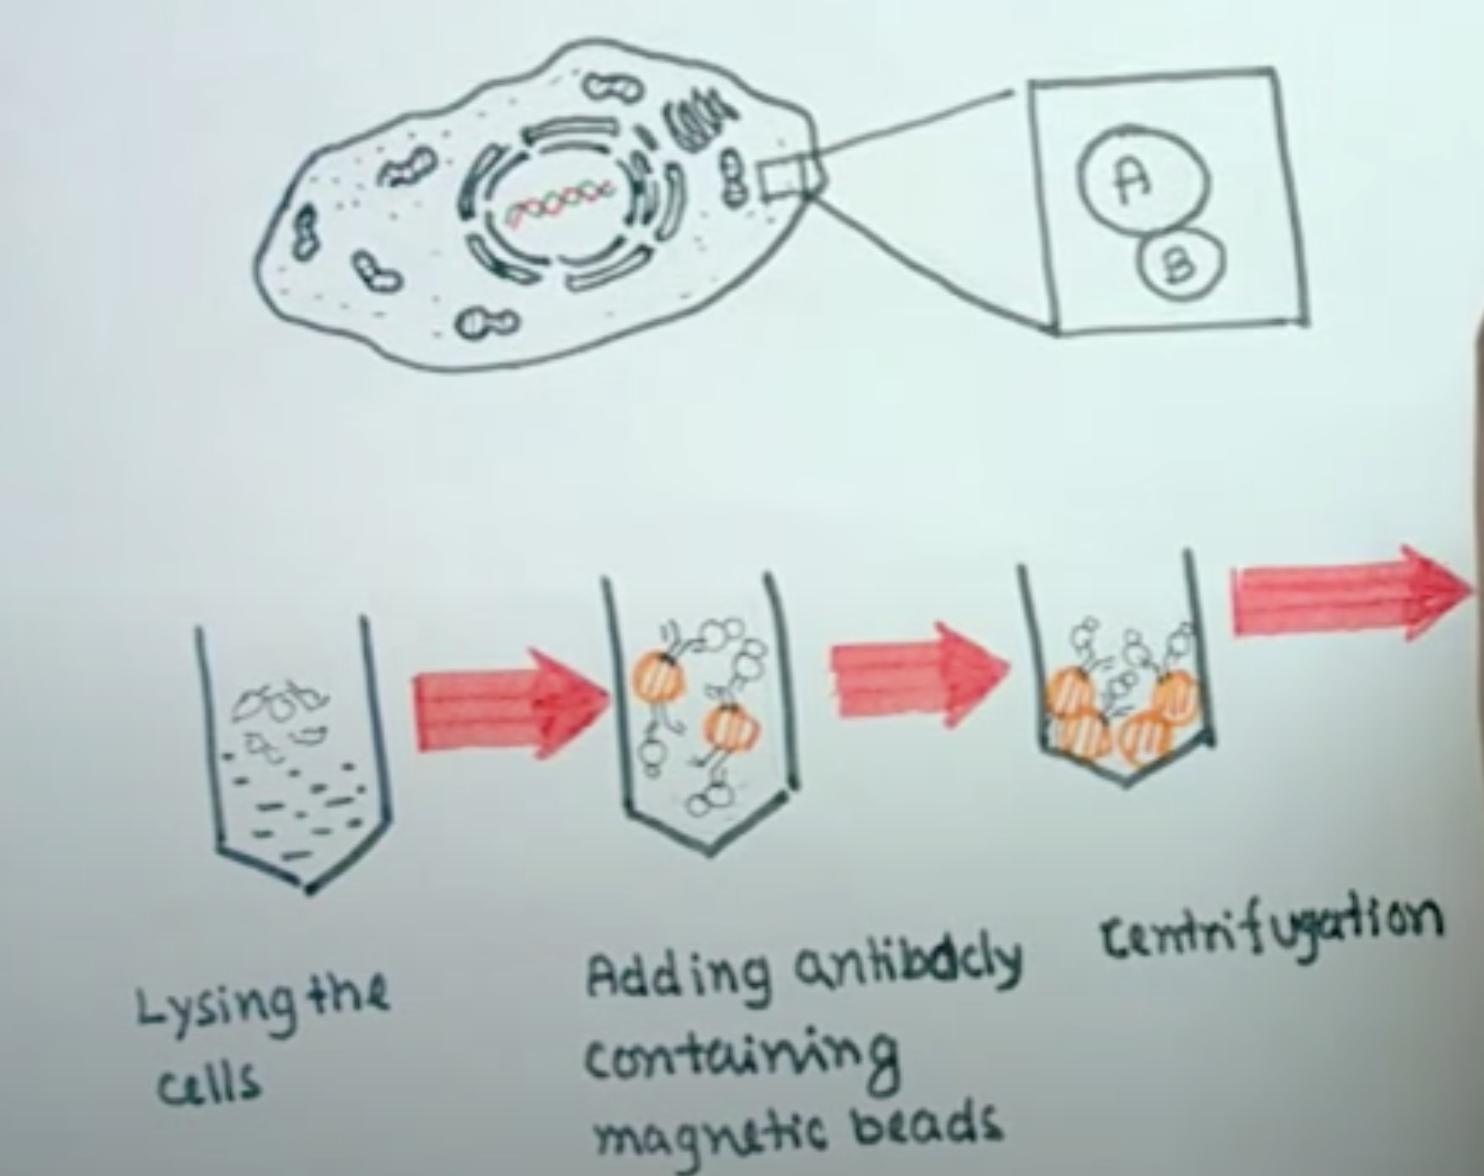 A
B
Lysing the
cells
Adding antibody
containing
magnetic beads
Centrifugation